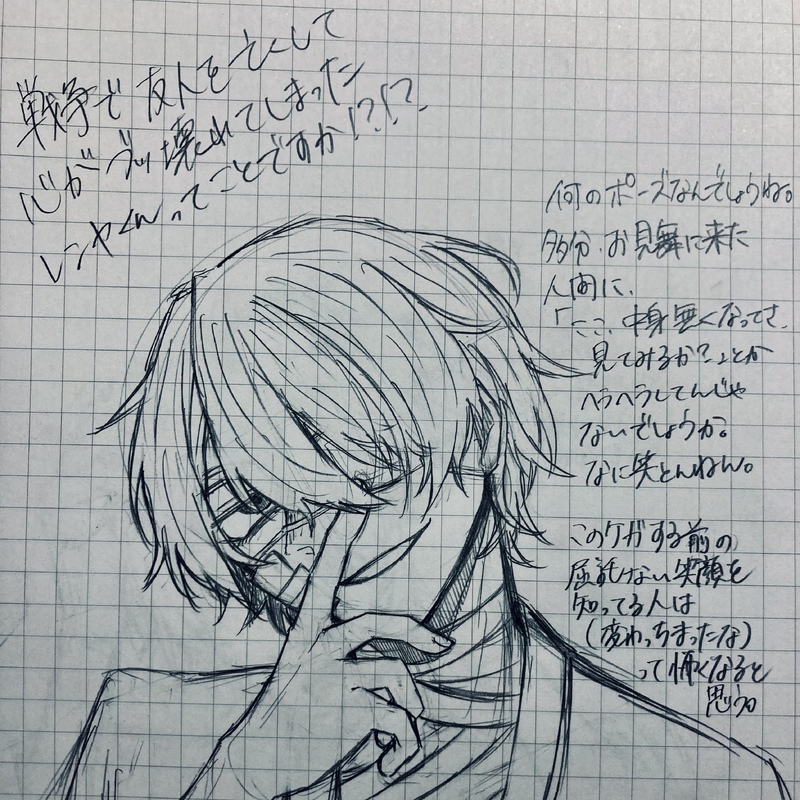 戦争で友人を亡くして
心がブッ壊れてしまった
レンヤくんってことですか!?!?
何のポーズなんでしょうね。
多分、お見舞に来た
人間に、
「ここ、中身無くなってさ、
見てみるか?」とか
ヘラヘラしてんじゃ
ないでしょうか。
なに笑とんねん。
このケガする前の
屈託ない笑顔を
知ってる人は
(変わっちまったな)
って怖くなると
思う。